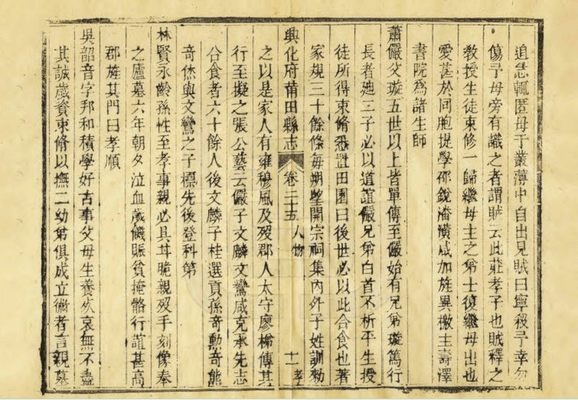 追急輒匿母于叢薄中自出見賊曰寧殺予幸勿
傷予母旁有識之者謂賊云此莊孝子也賊釋之
教授生徒束修一歸繼母主之第士復繼母出也
愛甚於同胞提學邵銳潘潢咸加旌異檄主壽澤
書院為諸生師
蕭儼父璇五世以上皆單傳至儼始有兄弟璇篤行
長者迪三子必以道誼儼兄弟白首不析平生授
徒所得束修悉置田園曰後世必以此合食也著
家規三十餘條每朔望開宗祠集內外子姓訓勅
興化府莆田縣志 卷二十五 人物 十一 孝
之以是家人有雍穆風及歿郡人太守廖梯傳其
行至擬之張公藝云儼子文麟文鸞咸克承先志
合食者六十餘人後文麟子桂選貢孫奇勳奇能
奇傑與文鸞之子標先後登科第
林賢永齡孫性至孝事親必具甘脆親歿手刻像奉
之廬墓六年朝夕泣血歲饑賑貧掩骼行誼甚高
郡旌其門曰孝順
吳韶音字邦和積學好古事父母生養歿哀無不盡
其誠歲資束修以撫二幼弟俱成立徵者言親墓